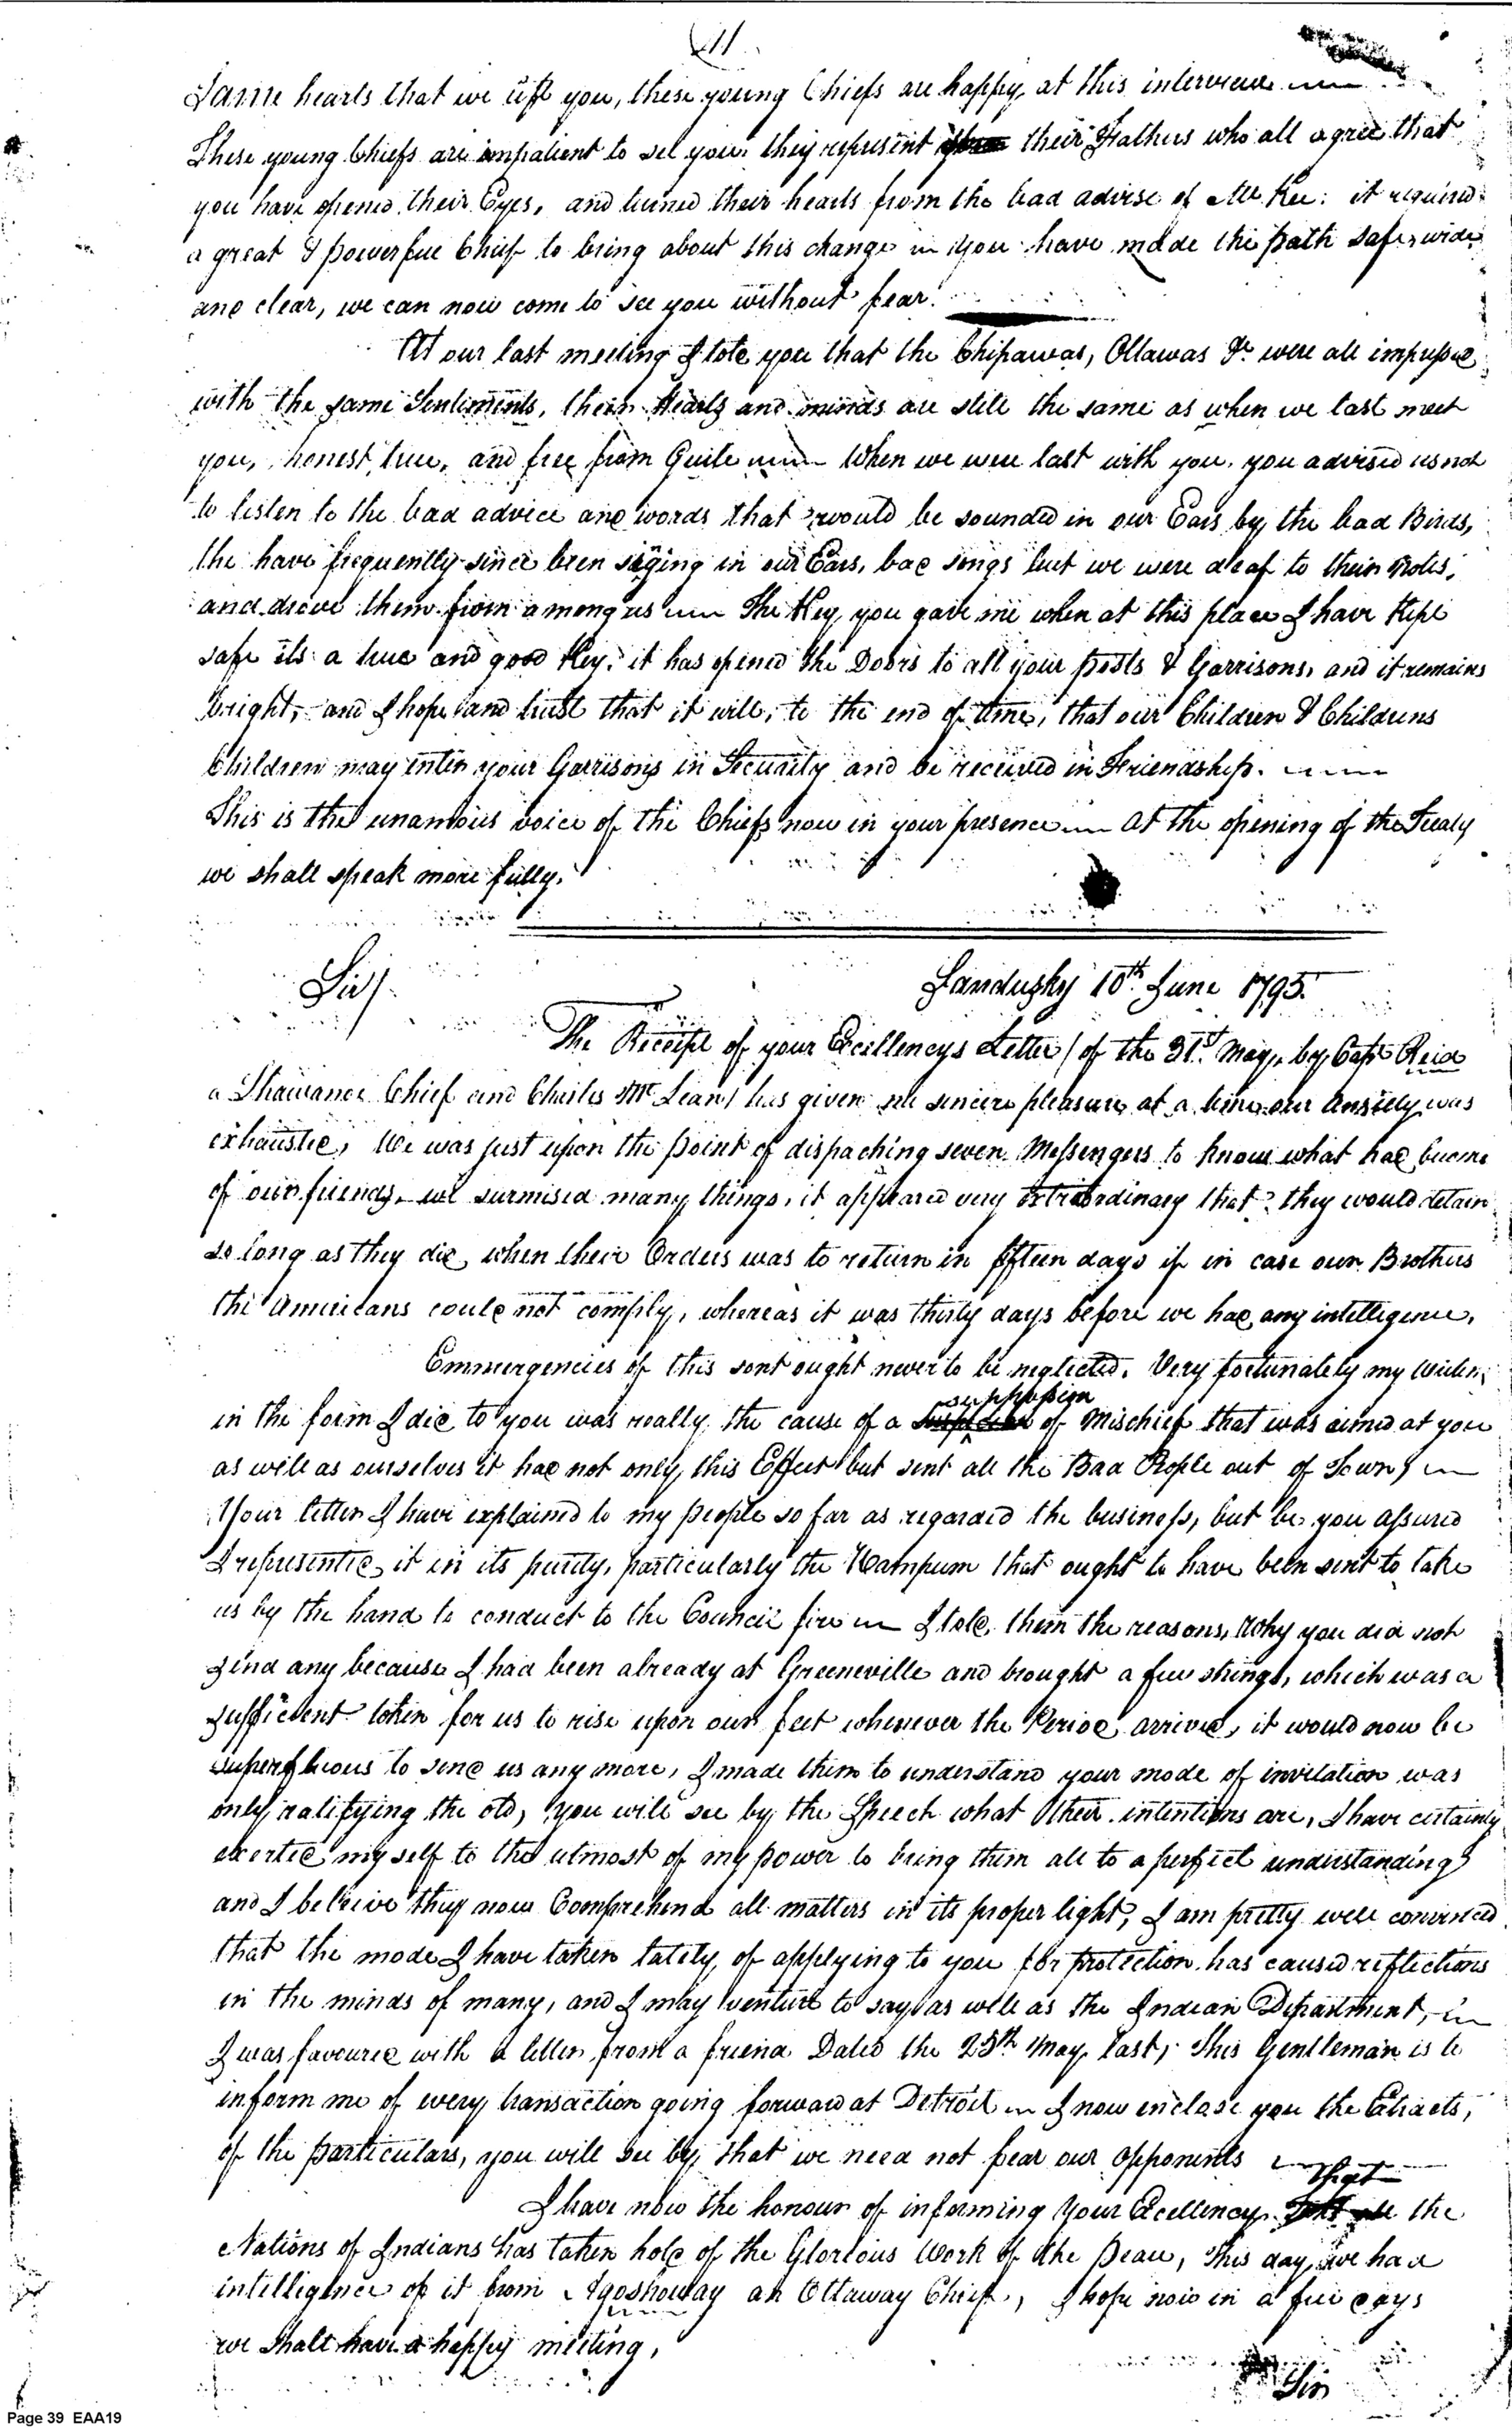 11
Same hearts that we left you, these young Chiefs are happy at this interview
These young Chiefs are impatient to see you. they represent their Fathers who all agree that
you have opened their Eyes, and turned their hearts from the bad advise of McKee: it required
a great & powerfull Chief to bring about this change you have made the path safe, wide
and clear, we can now come to see you without fear.
At our last meeting I told you that the Chipawas, Ottawas &c. were all impressed
with the same Sentiments, their Hearts and minds are still the same as when we last meet
you, honest, true, and free from Guile When we were last with you. you advised us not
to listen to the bad advice and words that would be sounded in our Ears by the bad Birds,
the have frequently since been siging in our Ears, bad songs but we were deaf to their Notes,
and drove them from among us The Key, you gave me when at this place I have Kept
safe its a true and good Key, it has opened the Doors to all your posts & Garrisons, and it remains
bright, and I hope and trust that it will, to the end of time, that our Children & Childrens
Children may enter your Garrisons in Security and be received in Friendship.
This is the unamoius voice of the Chiefs now in your presence at the opening of the Treaty
we shall speak more fully.
Sir/. Sandusky 10th June 1795.
The Receipt of your Excellencys Letter / of the 31st May, by Capt Reid
a Shawanoe Chief and Charles McLean / has given me sincere pleasure, at a time our anxiety was
exhausted, We was just upon the point of dispaching seven Messengers to know what had become
of our friends, we surmised many things, it appeared very extraordinary that they would detain
so long as they did, when their Orders was to return in fifteen days if in case our Brothers
the Americans could not comply, whereas it was thirty days before we had any intelligence,
Emmergencies of this sort ought never to be neglected. Very fortunately my
in the form I did to you was really the cause of a suppresion of Mischief that was aimed at you
as well as ourselves it had not only this Effect but sent all the Bad People out of Town,
Your letter I have explained to my people so far as regarded the business, but be you assured
I represented it in its purity, particularly the Wampum that ought to have been sent to take
us by the hand to conduct to the Council fire I told them the reasons, why you did not
send any because I had been already at Greeneville and brought a few strings, which was a
sufficient token for us to rise upon our feet whenever the Period arrived, it would now be
superfluous to send us any more, I made them to understand your mode of invitation was
only ratifying the old, you will see by the Speech what their intentions are, I have certainly
exerted myself to the utmost of my power to bring them all to a perfect understanding
and I beleive they now Comprehend all matters in its proper light, I am pretty well convinced
that the mode I have taken lately, of applying to you for protection has caused reflections
in the minds of many, and I may venture to say as well as the Indian Department,
I was favoured with a letter from a friend Dated the 25th May last, This Gentleman is to
inform me of every transaction going forward at Detroit I now enclose you the Extracts,
of the particulars, you will see by, that we need not fear our opponents
I have now the honour of informing Your Excellency that the
Nations of Indians has taken hold of the Glorious Work of the Peace, This day we had
intelligence of it from Agoshoway an Ottaway Chief, I hope now in a few days
we shall have a happy meeting,
Sir
Page 39 EAA19